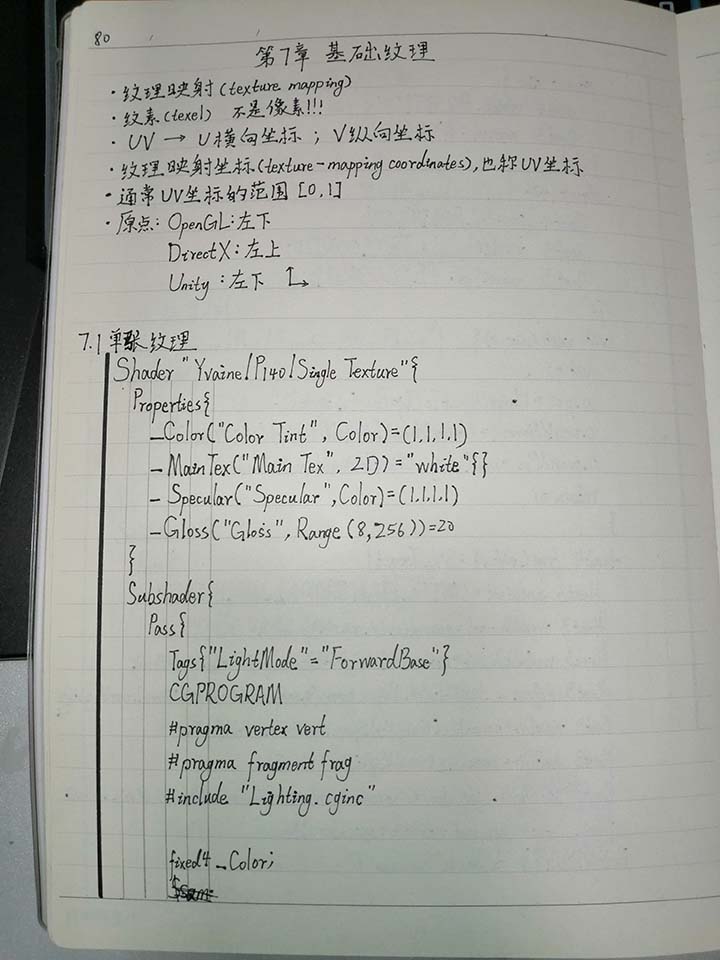 80
第7章 基础纹理
·纹理映射(texture mapping)
·纹素(texel) 不是像素!!!
·UV → U横向坐标 ; V纵向坐标
·纹理映射坐标(texture-mapping coordinates),也称UV坐标
·通常UV坐标的范围[0,1]
·原点: OpenGL:左下
DirectX:左上
Unity:左下
7.1 单张纹理
Shader "Yvaine/P140/Single Texture"{
Properties{
_Color("Color Tint", Color)=(1,1,1,1)
_MainTex("Main Tex", 2D)="white"{}
_Specular("Specular",Color)=(1,1,1,1)
_Gloss("Gloss", Range(8,256))=20
}
Subshader{
Pass{
Tags{"LightMode"="ForwardBase"}
CGPROGRAM
#pragma vertex vert
#pragma fragment frag
#include "Lighting.cginc"
fixed4 _Color;